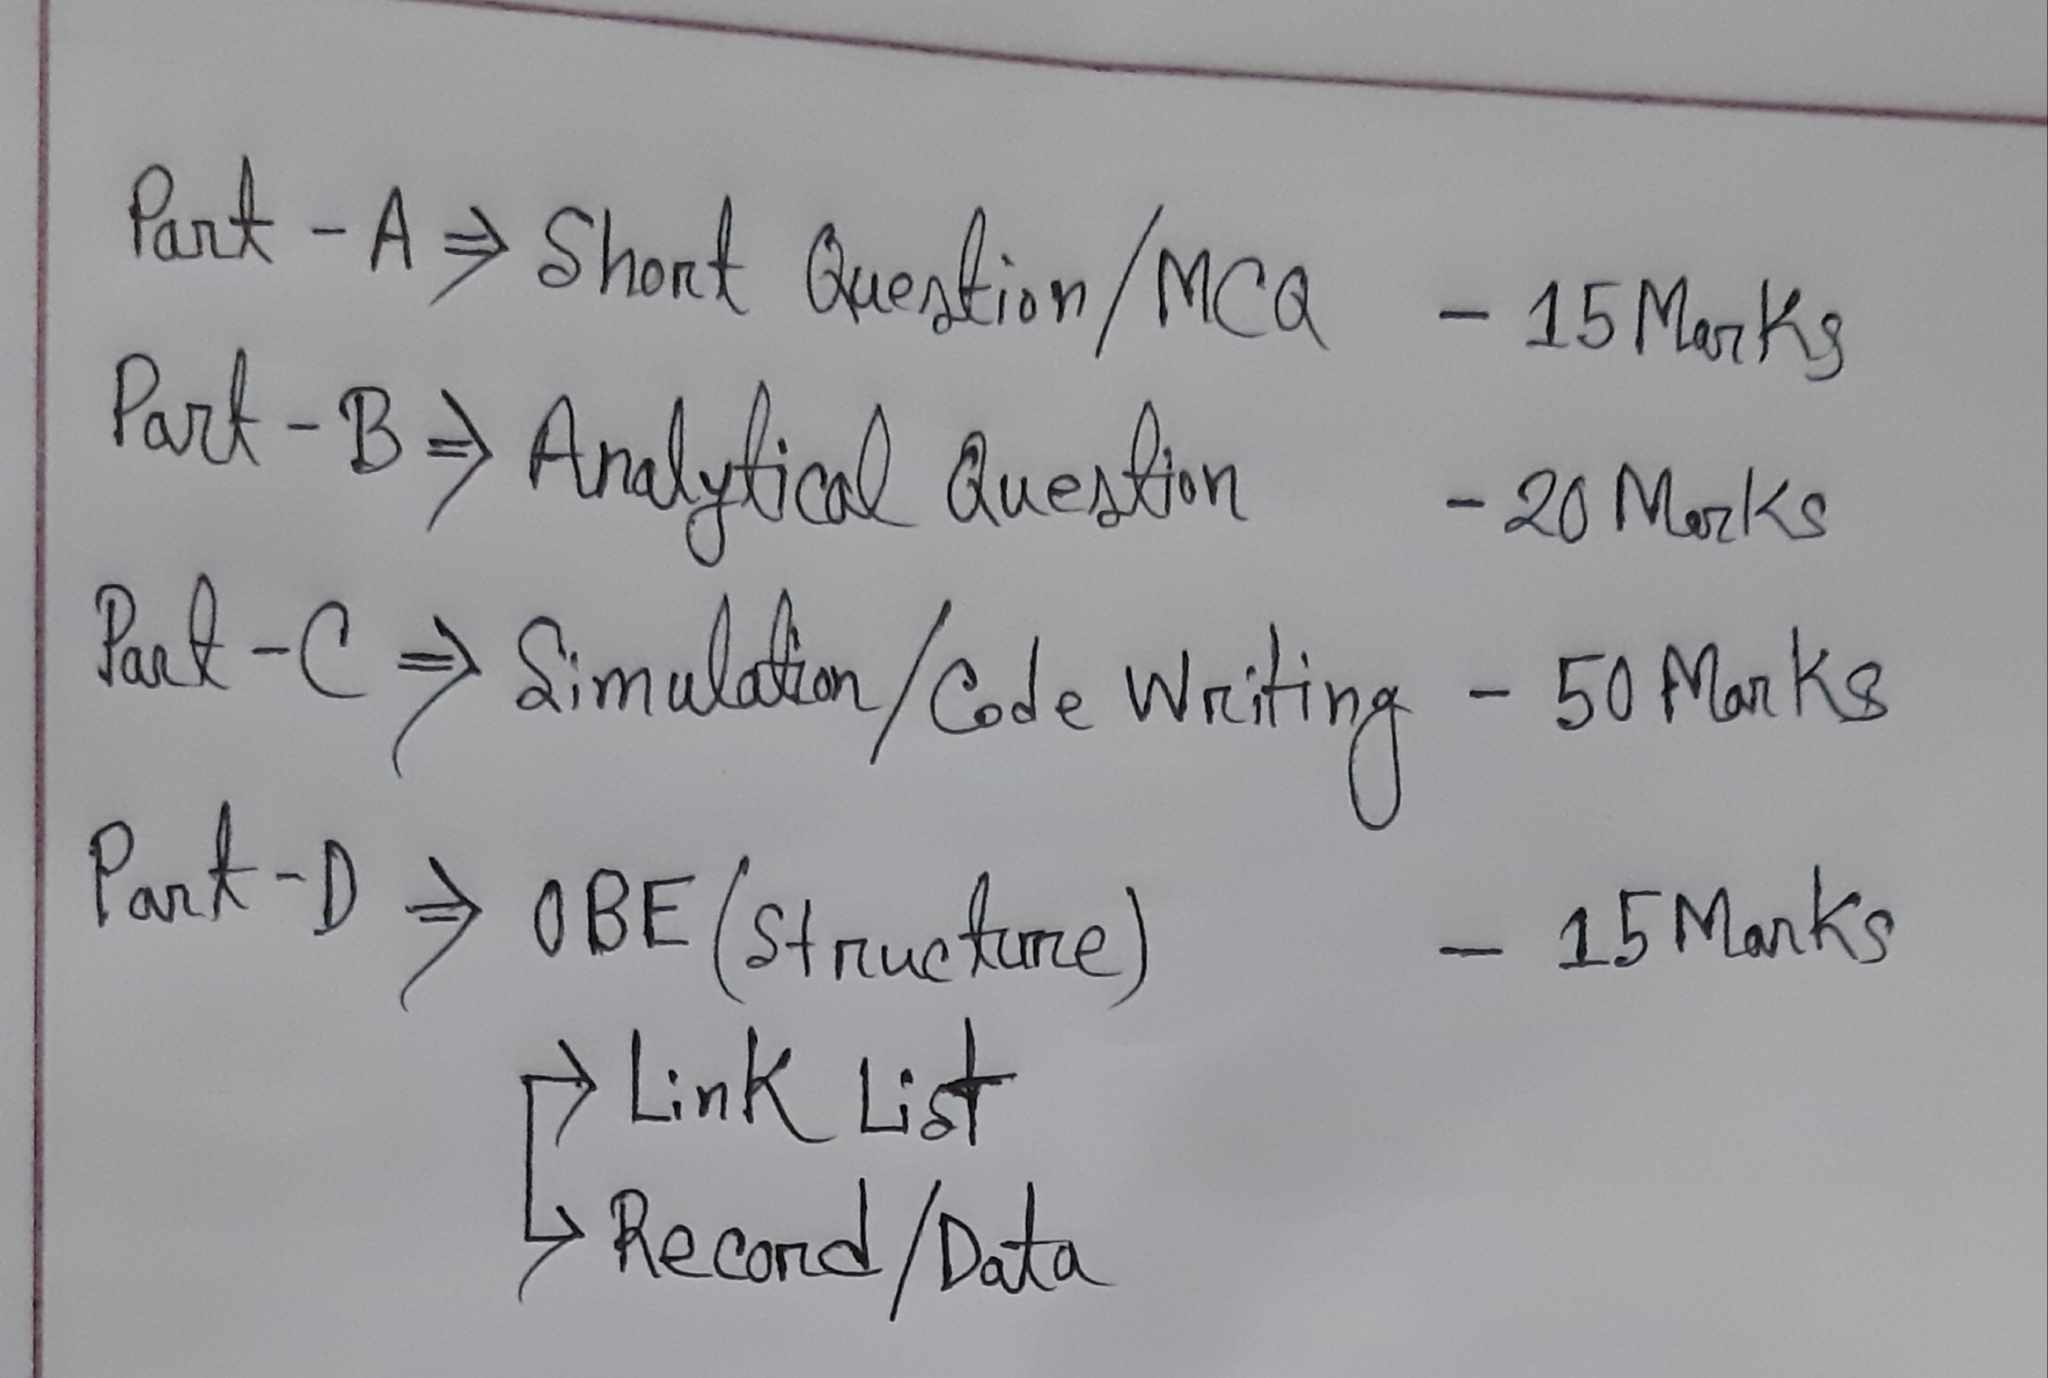 Part - A ⇒ Short Question/MCQ - 15 Marks
Part - B ⇒ Analytical Question - 20 Marks
Part - C ⇒ Simulation/Code Writing - 50 Marks
Part - D ⇒ OBE (Structure) - 15 Marks
→ Link List
↳ Record/Data